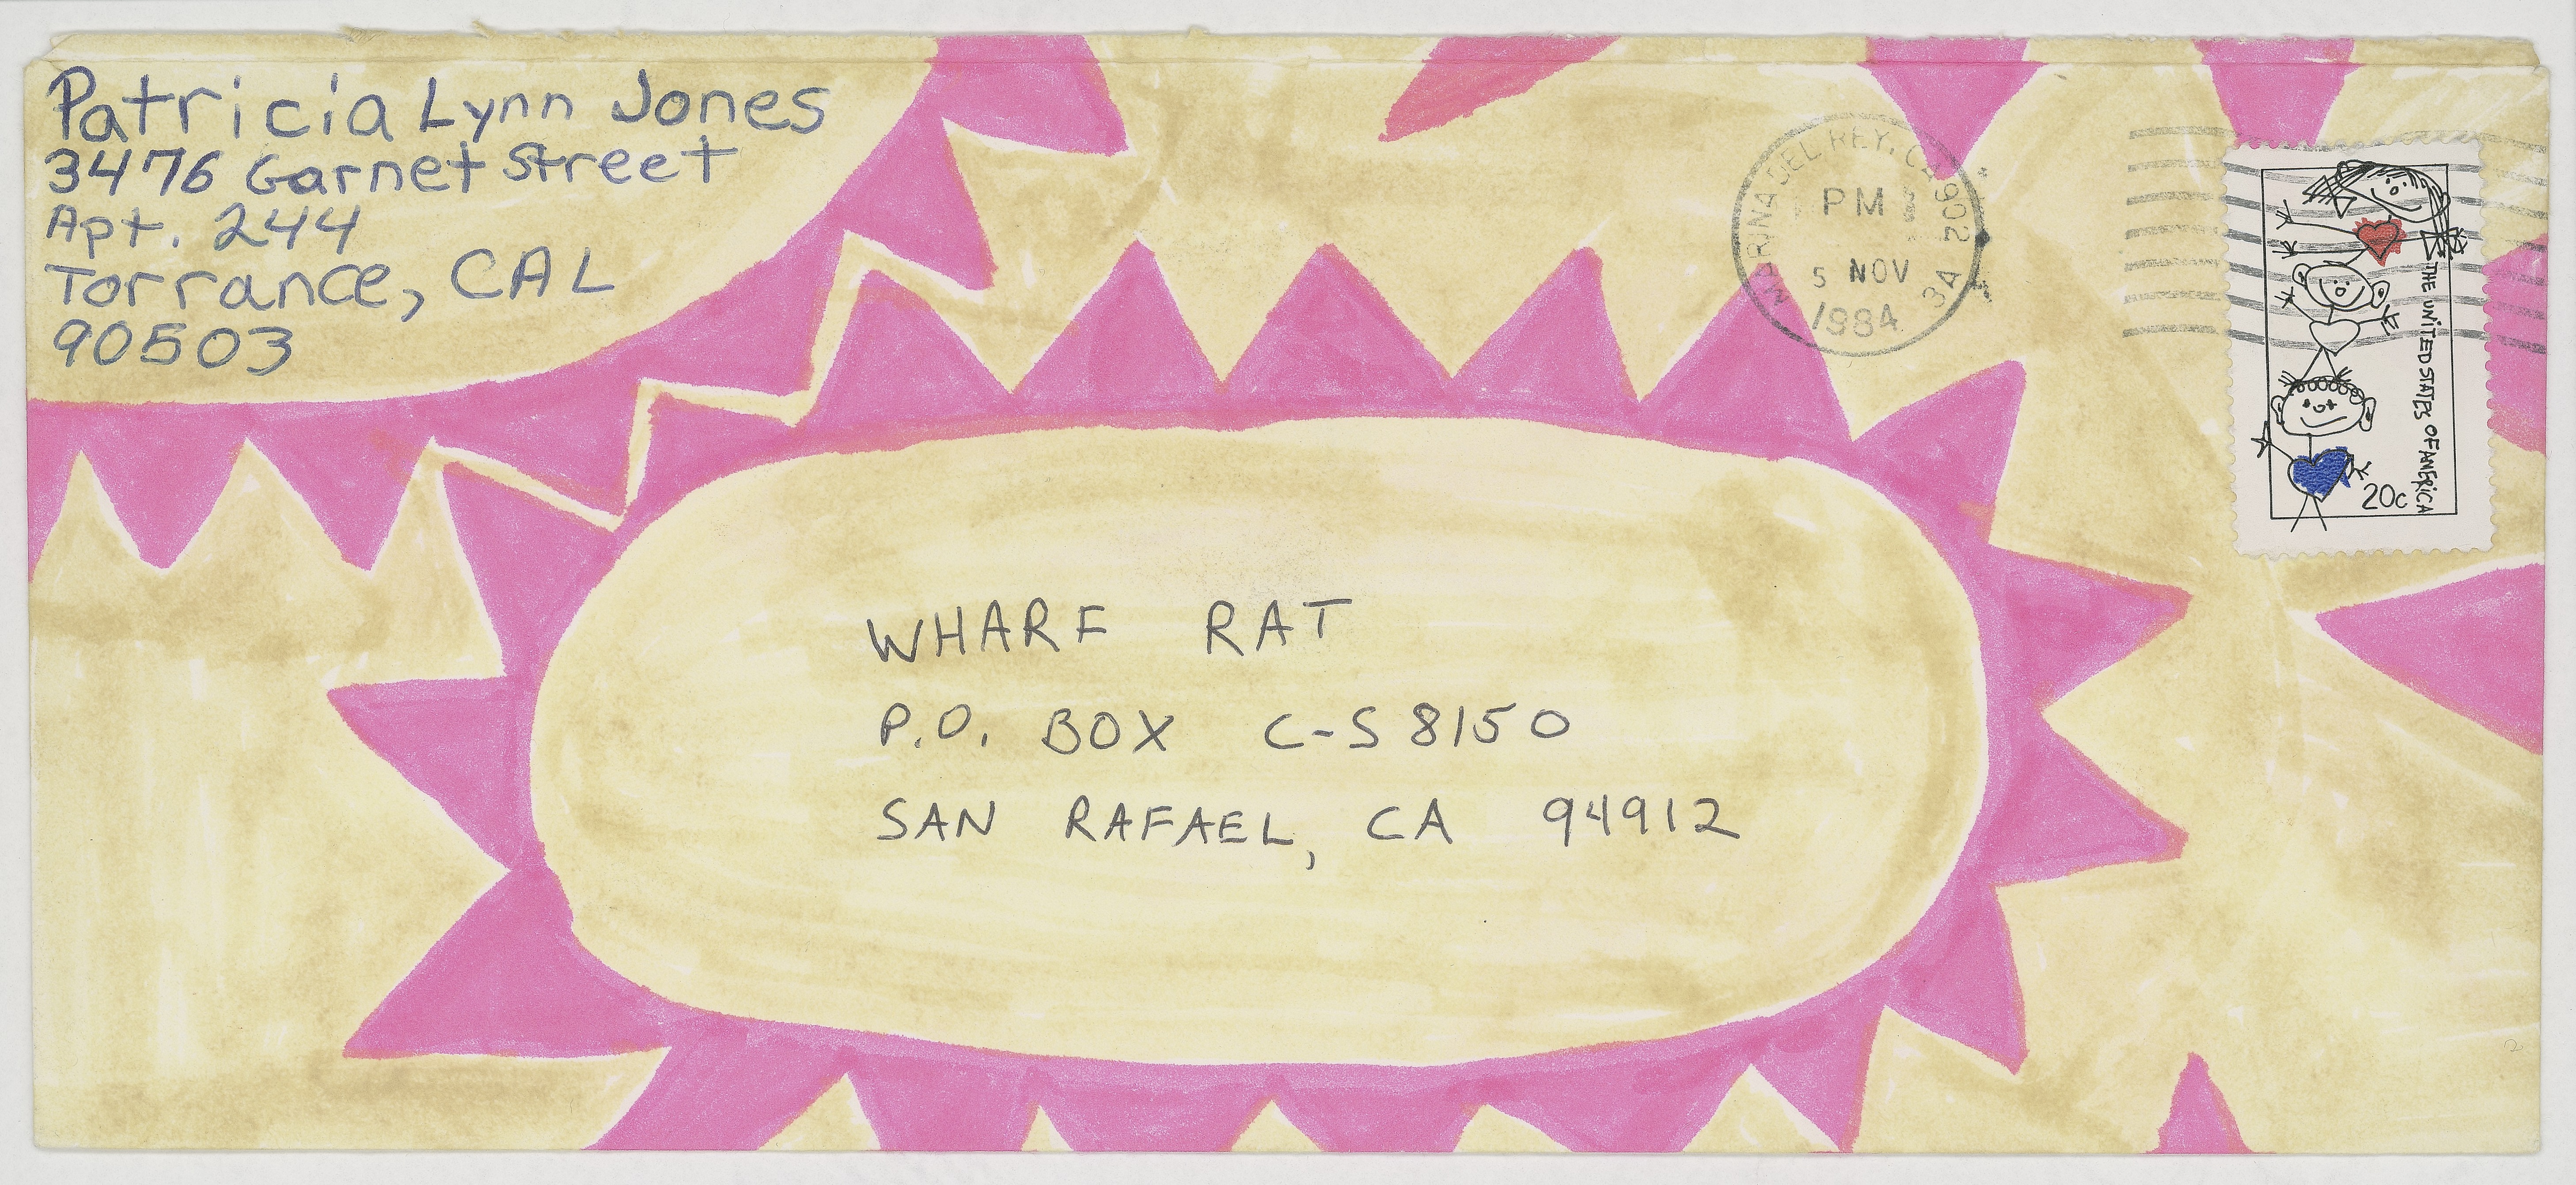 Patricia Lynn Jones
3476 Garnet Street
Apt. 244
Torrance, CAL
90503
MARINA DEL REY, CA 902
PM
5 NOV
1984
3A
THE UNITED STATES OF AMERICA
20c
WHARF RAT
P.O. BOX C-S 8150
SAN RAFAEL, CA 94912